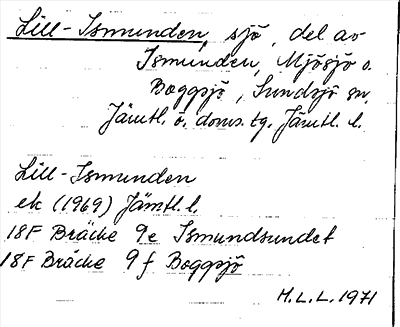 Lill-Ismunden, sjö, del av
Ismunden, Mjösjö o.
Boggsjö, Sundsjö sn,
Jämtl. ö. doms. tg, Jämtl. l.
Lill-Ismunden
ek (1969) Jämtl. l.
18F Bräcke 9e Ismundsundet
18F Bräcke 9f Boggsjö
H.L.L. 1971